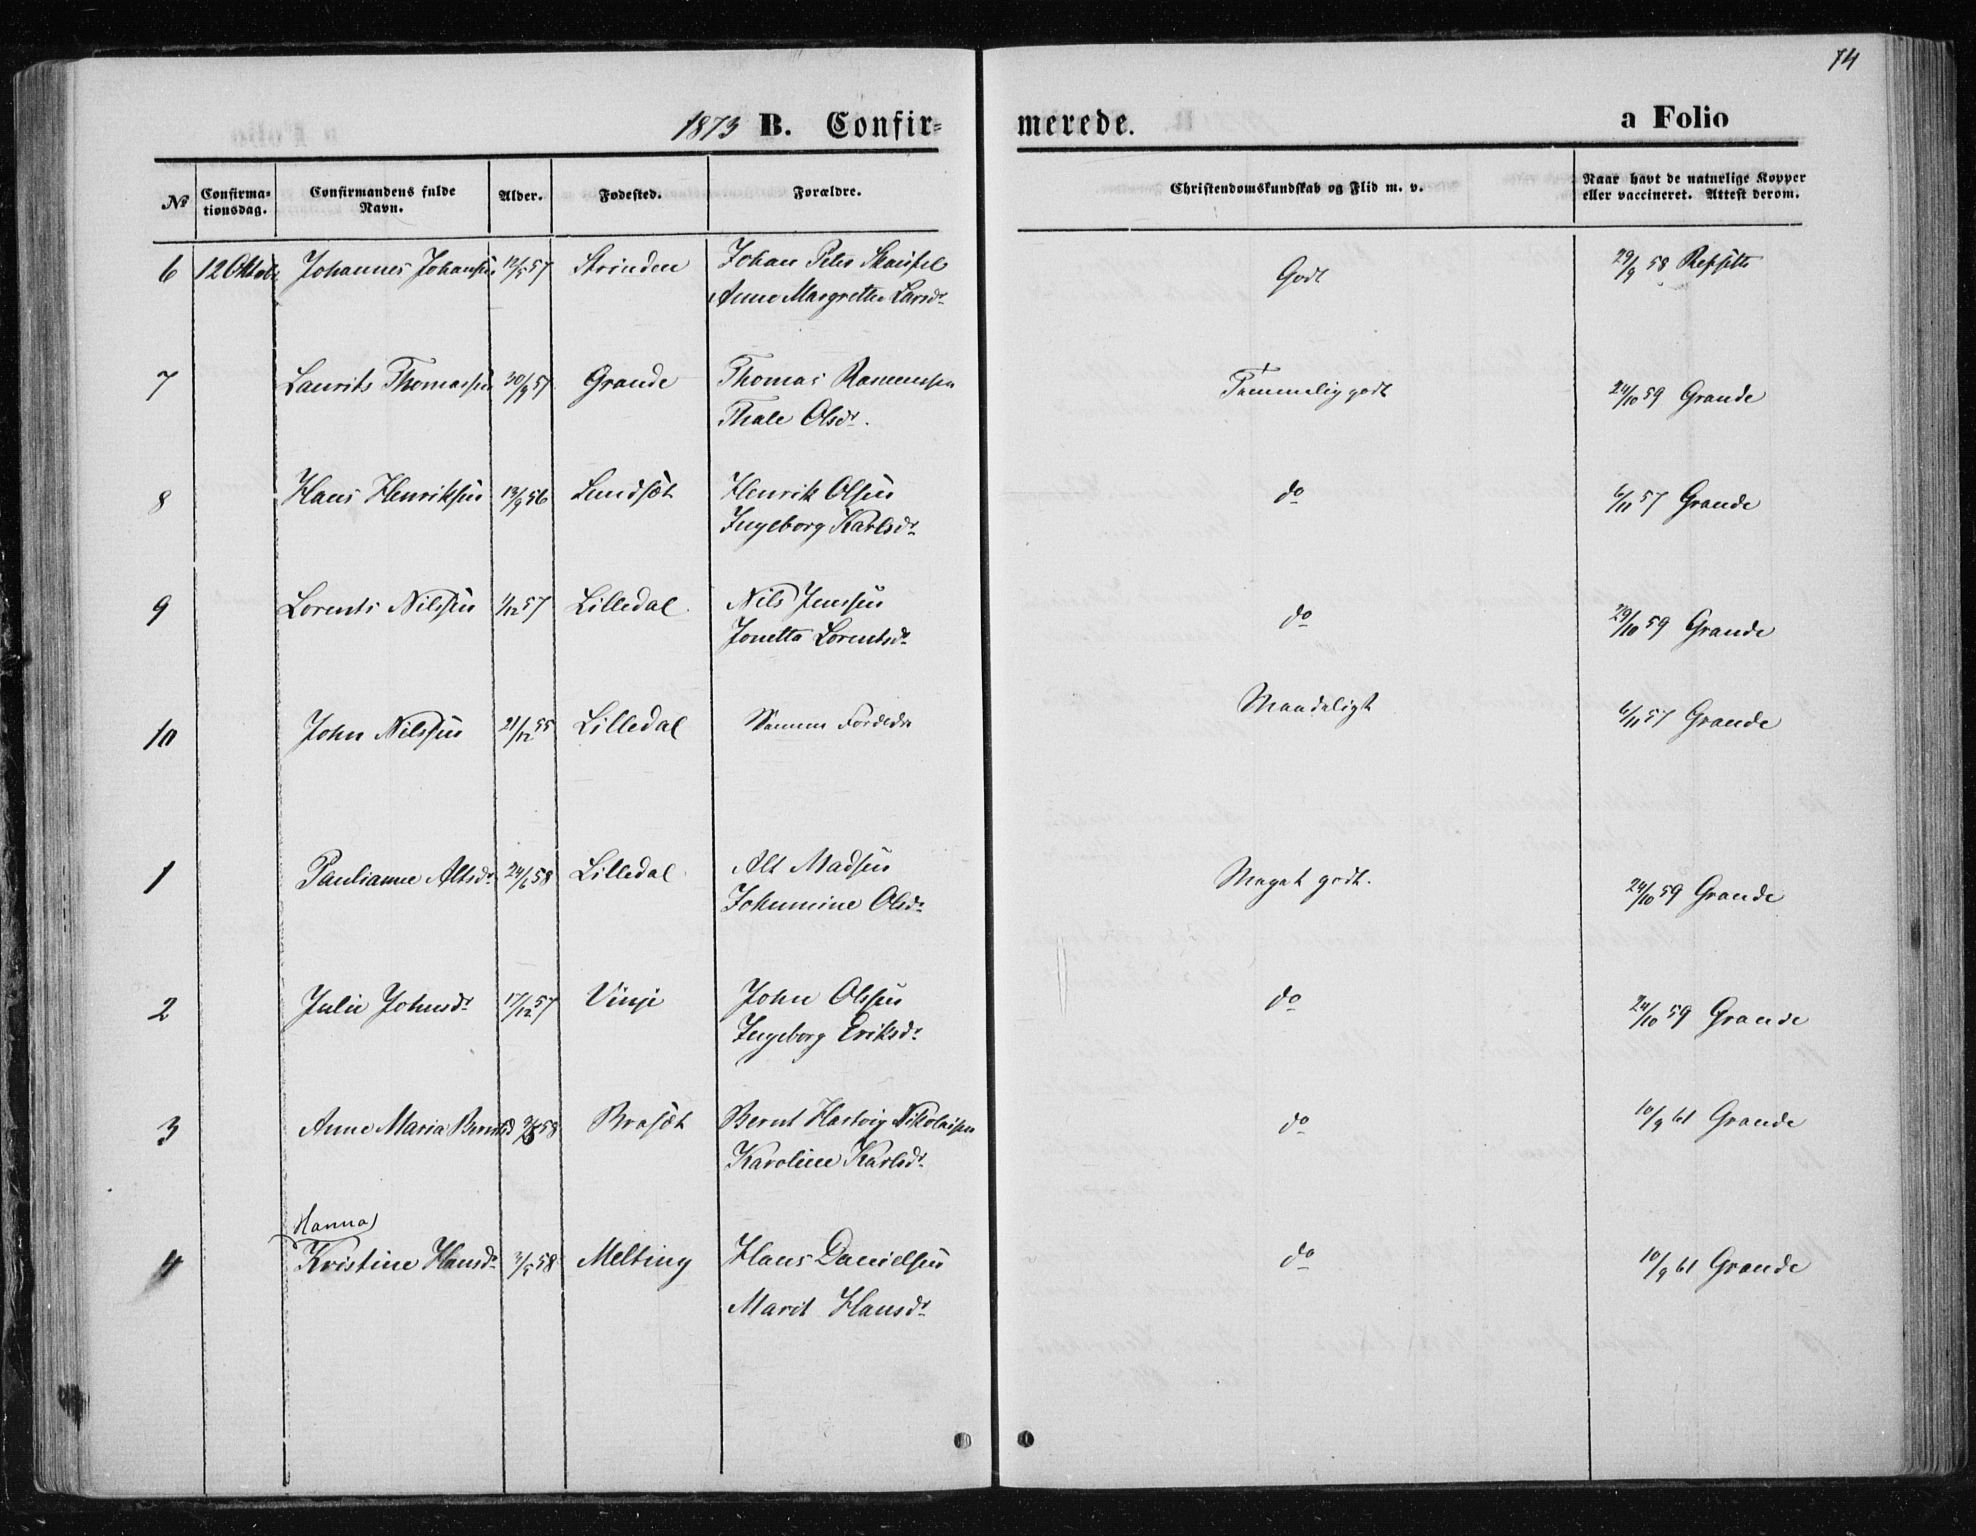 74
1873 B. Confir=
merede.
a Folio
No Confirma=tionsdag. Confirmandens fulde Navn. Alder. Fødested. Forældre. Christendomskundskab og Flid m. v. Naar havt de naturlige Kopper eller vaccineret. Attest derom.
6 12 Oktob. Johannes Johansen 12/5 57 Strinden Johan Peter Godt 29/9 58
Anne Margrethe Larsdr
7 Laurits Thomassen 30/9 57 Grande Thomas Rasmussen Temmelig godt 24/10 59 Grande
Thale Olsdr.
8 Hans Henriksen 13/9 56 Lundsæt Henrik Olsen do 6/11 57 Grande
Ingeborg Karlsdr
9 Lorents Nilssen 1/12 57 Lilledal Nils Jenssen do 29/10 59 Grande
Jonetta Lorentsdr
10 John Nilssen 21/12 55 Lilledal Samme Forældre Maadeligt 6/11 57 Grande
1 Paulianne Altsdr 24/6 58 Lilledal Alt Madsen Meget godt. 24/10 59 Grande
Johannine Olsdr
2 Julie Johnsdr 17/12 57 Vinje John Olssen do 24/10 59 Grande
Ingeborg Eriksdr
3 Anne Maria Berntsd 58 Brasæt Bernt Hartvig Nikolaisen do 10/9 61 Grande
Karoline Karlsdr
Hanna
4 Kristine Hansdr 3/5 58 Melting Hans Danielsen do 10/9 61 Grande
Marit Hansdr